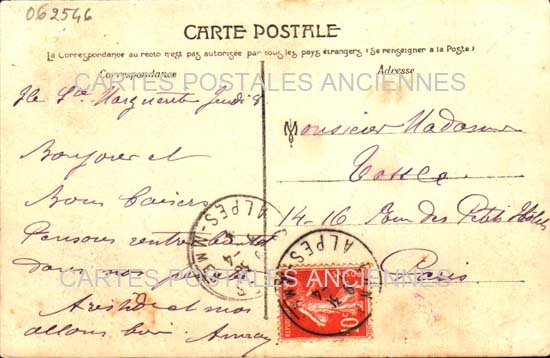 062546
CARTE POSTALE
La Correspondance au recto n'est pas autorisée par tous les pays étrangers (Se renseigner à la Poste)
Correspondance
Adresse
CARTES POSTALES ANCIENNES
Ile Ste Marguerite Jeudi 8
Bonjour et
Bons baisers
Pensons rentrer bientôt
dans nos
et nos
allons bien
Monsieur Madame
14-16 Rue des Petits Hôtels
Paris
ALPES-M
ALPES-M
10c
CARTES POSTALES ANCIENNES